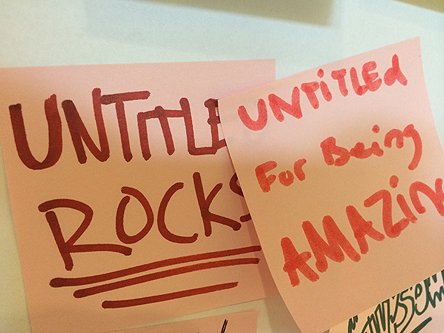 UNTITLE
ROCKS
UNTiTLEd
For Being
AMAZiN